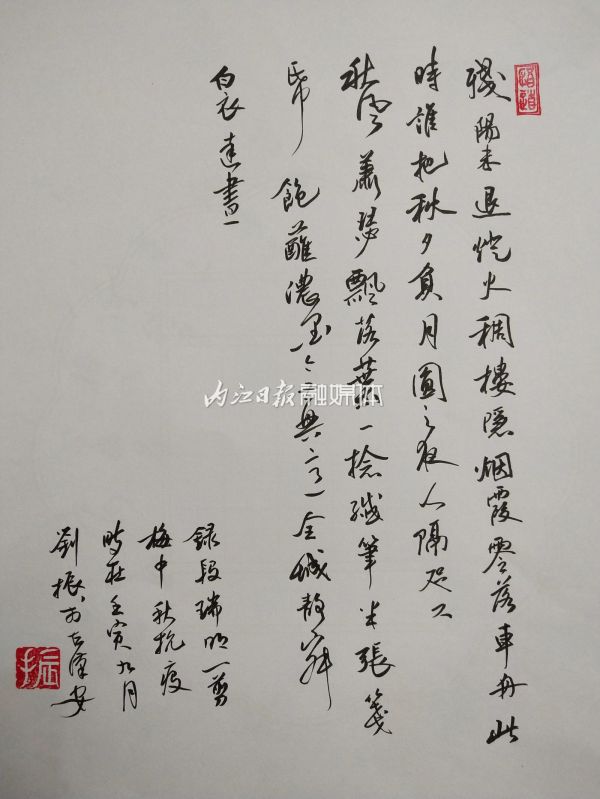 殘陽未退灯火稠樓隱烟霞零落車舟此
時誰把秋夕負月圓之夜人隔咫
秋風蕭瑟飄落葉一捻纖筆半張箋
帋飽蘸濃墨興言一全城静
白衣達書一
録段瑞明一剪
梅中秋抗疫
時在壬寅九月
劉振
内江日报融媒体